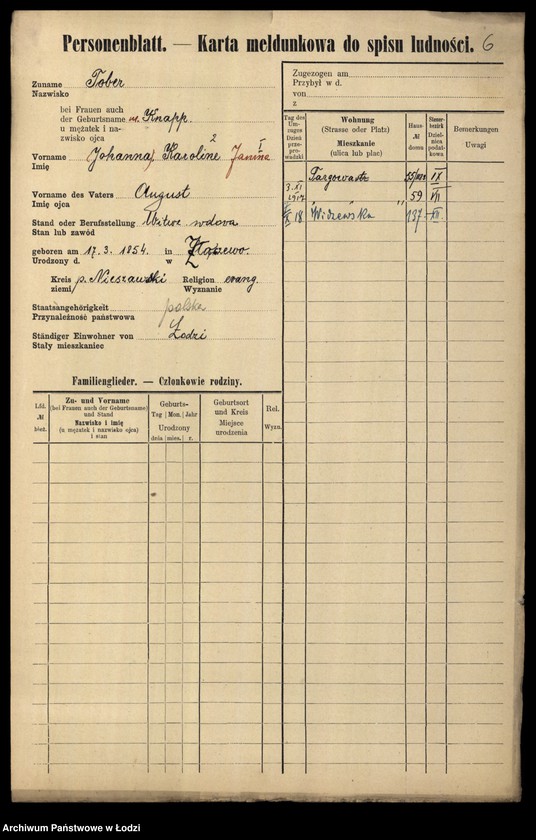 Personenblatt. — Karta meldunkowa do spisu ludności. 6
Zuname Tober
Nazwisko
bei Frauen auch
der Geburtsname Knapp.
u mężatek i na-
zwisko ojca
2 I
Vorname (Johanna) Karoline Janina
Imię
Vorname des Vaters August
Imię ojca
Stand oder Berufsstellung Witwe wdowa
Stan lub zawód
geboren am 17. 3. 1854. in
Urodzony d. w
Kreis p. Nieszawski Religion evang.
ziemi Wyznanie
Staatsangehörigkeit polska
Przynależność państwowa
Ständiger Einwohner von Łodzi
Stały mieszkaniec
Familienglieder. — Członkowie rodziny.
Lfd. № bież.
Zu- und Vorname
(bei Frauen auch der Geburtsname)
und Stand
Nazwisko i imię
(u mężatek i nazwisko ojca)
i stan
Geburts-
Tag Mon. Jahr
Urodzony
dnia mies. r.
Geburtsort
und Kreis
Miejsce
urodzenia
Rel.
Wyzn.
Zugezogen am
Przybył w d.
von
z
Tag des Um-zuges
Dzień prze-prowadzki
Wohnung
(Strasse oder Platz)
Mieszkanie
(ulica lub plac)
Haus-
№
domu
Steuer-bezirk
Dziel-nica podat-kowa
Bemerkungen
Uwagi
Targowastr. IX
3. XI 1917 " " 59 VII
18 Widzewska 137
Archiwum Państwowe w Łodzi